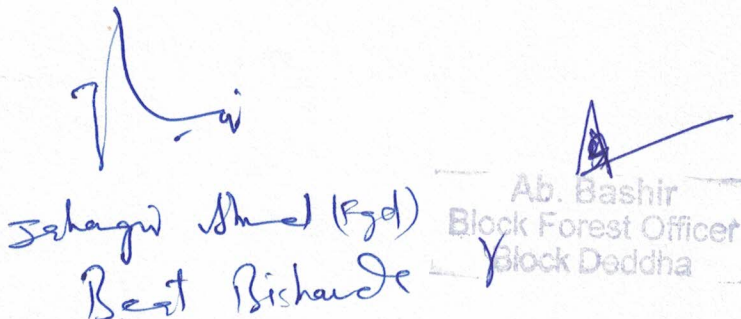 Jahagir Ahmed (Fgd)
Beat
Ab. Bashir
Block Forest Officer
Block Deddha